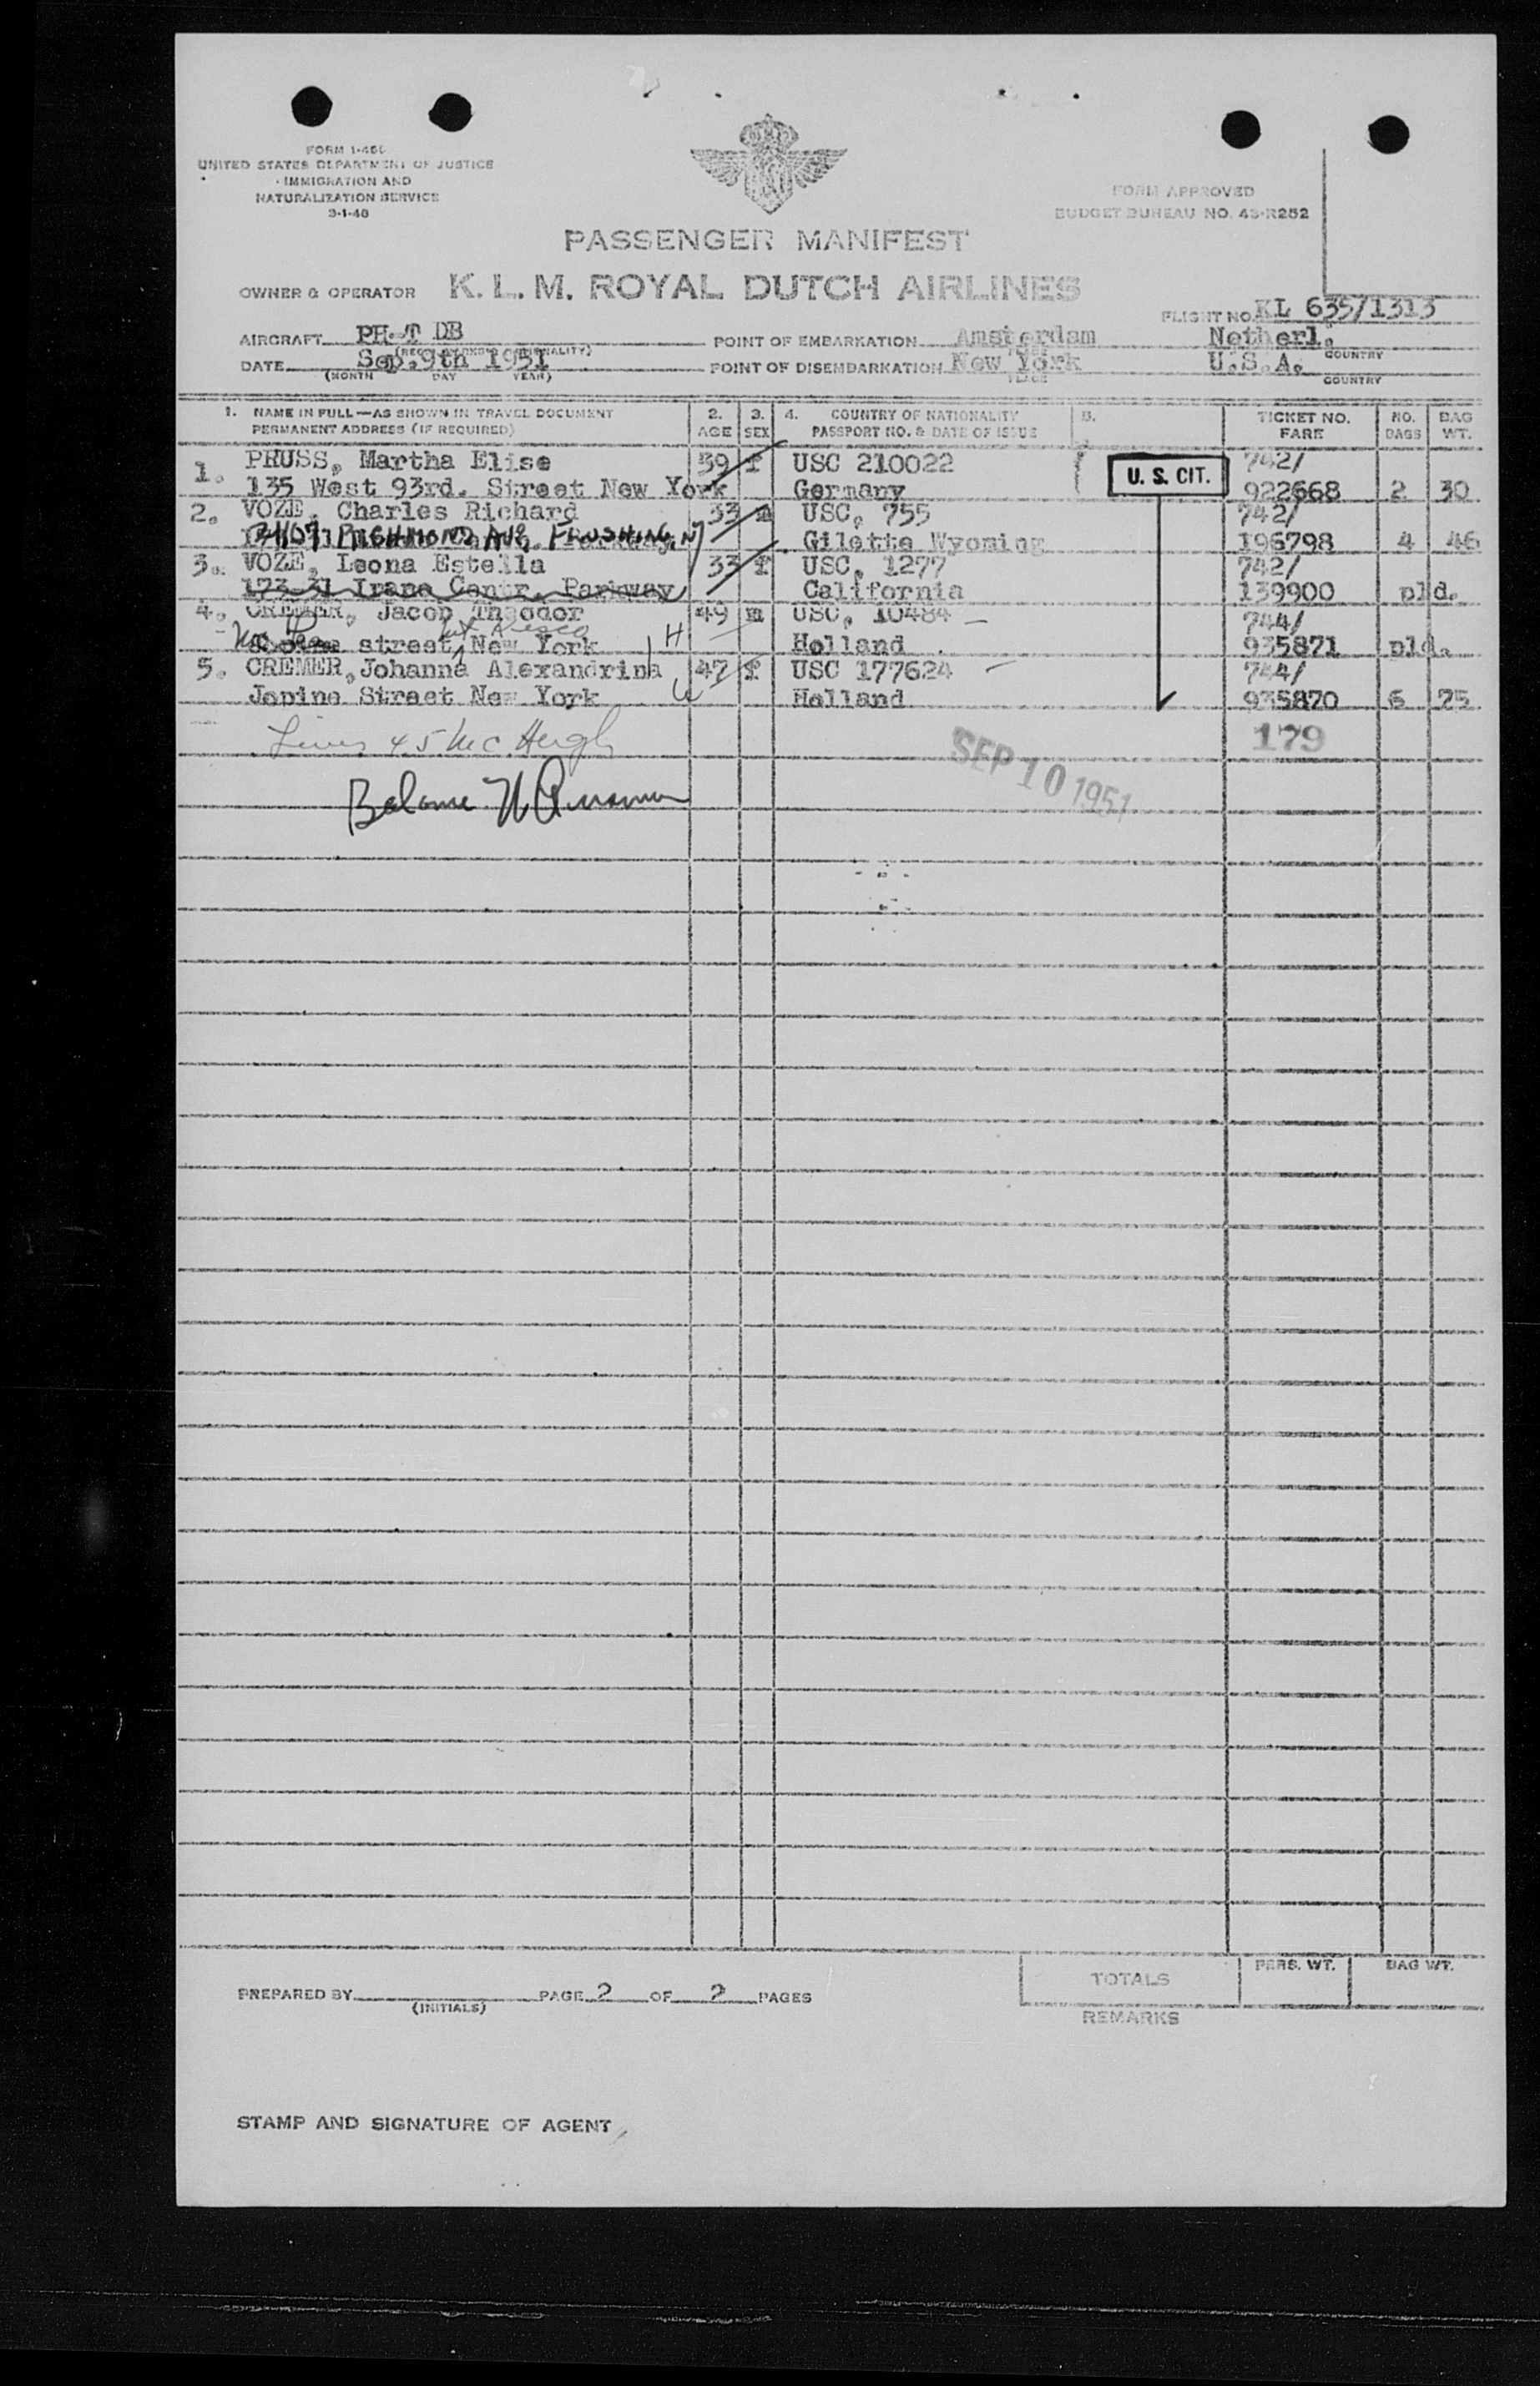 FORM I-466
UNITED STATES DEPARTMENT OF JUSTICE
IMMIGRATION AND
NATURALIZATION SERVICE
3-1-48
FORM APPROVED
BUDGET BUREAU NO. 43-R252
PASSENGER MANIFEST
OWNER & OPERATOR K. L. M. ROYAL DUTCH AIRLINES
FLIGHT NO. KL 635/1313
AIRCRAFT PH-T DB POINT OF EMBARKATION Amsterdam Netherl.
COUNTRY
DATE Sep. 9th 1951 POINT OF DISEMBARKATION New York U.S.A.
(MONTH DAY YEAR) PLACE COUNTRY
1. NAME IN FULL—AS SHOWN IN TRAVEL DOCUMENT 2. 3. 4. COUNTRY OF NATIONALITY 5. TICKET NO. NO. BAG
PERMANENT ADDRESS (IF REQUIRED) AGE SEX PASSPORT NO. & DATE OF ISSUE FARE BAGS WT.
1. PRUSS, Martha Elise 39 f USC 210022 742/
135 West 93rd. Street New York Germany U. S. CIT. 922668 2 30
2. VOZE, Charles Richard 33 m USC, 755 742/
RICHMOND AVE, FLUSHING, NY Gilette Wyoming 196798 4 46
3. VOZE, Leona Estella 33 f USC, 1277 742/
173-31 Irana Centr. Parkway California 139900 pld.
4. CREMER, Jacob Theodor 49 m USC, 10484 744/
street, New York H Holland 935871 pld.
5. CREMER, Johanna Alexandrina 47 f USC 177624 744/
Jopine Street New York W Holland 935870 6 75
Lives 45 179
SEP 10 1951
PREPARED BY PAGE 2 OF 2 PAGES
(INITIALS)
TOTALS PERS. WT. BAG WT.
REMARKS
STAMP AND SIGNATURE OF AGENT